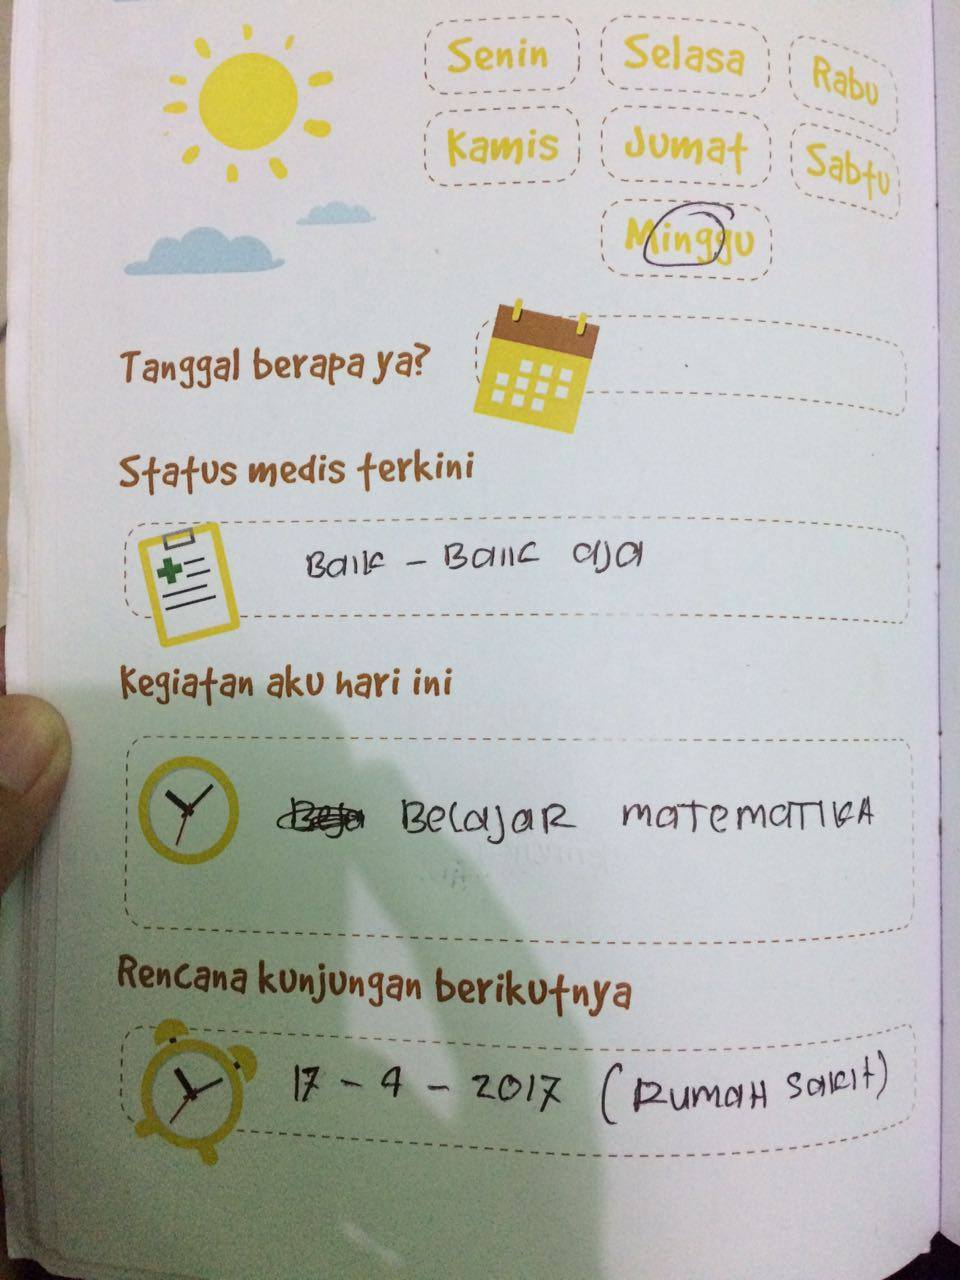 Senin Selasa Rabu
Kamis Jumat Sabtu
Minggu
Tanggal berapa ya?
Status medis terkini
Baik - Baik aja
Kegiatan aku hari ini
Belajar matematika
Rencana kunjungan berikutnya
17 - 4 - 2017 (Rumah Sakit)